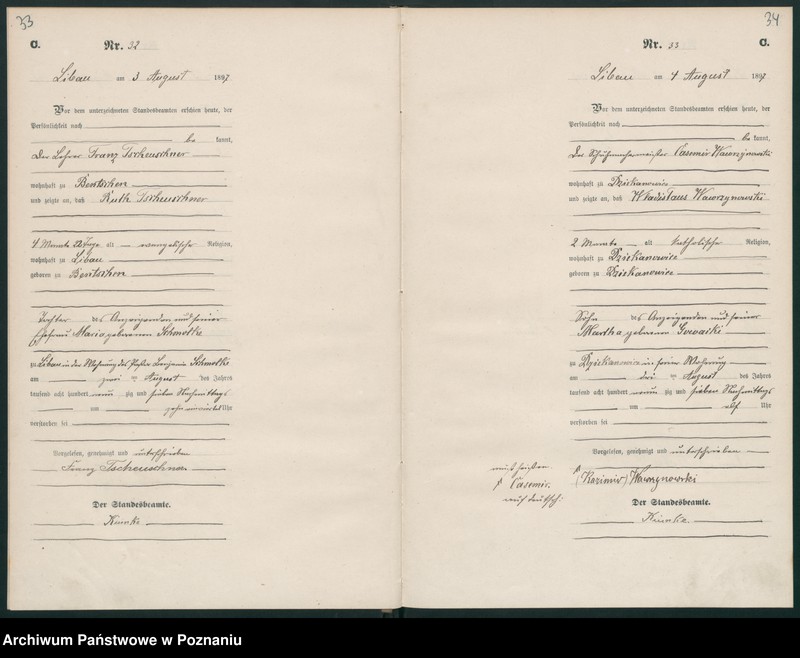 33
C.
Nr. 32
Libau am 3 August 1897
Vor dem unterzeichneten Standesbeamten erschien heute, der
Persönlichkeit nach
be kannt,
Der Lehrer Franz Tscheuschner
wohnhaft zu Bentschen
und zeigte an, daß Ruth Tscheuschner
4 Monate 22 Tage alt evangelischer Religion,
wohnhaft zu Libau
geboren zu Bentschen
Tochter des Anzeigenden und seiner
Ehefrau Maria geborenen Schmolke
zu Libau in der Wohnung des Benjamin Schmolke
am zwei ten August des Jahres
tausend acht hundert neun zig und sieben Nachmittags
um zehn Uhr
verstorben sei
Vorgelesen, genehmigt und unterschrieben
Franz Tscheuschner
Der Standesbeamte.
34
Nr. 33
C.
Libau am 4 August 1897
Vor dem unterzeichneten Standesbeamten erschien heute, der
Persönlichkeit nach
be kannt,
Der Schuhmachermeister Casemir Wawrzynowski
wohnhaft zu Dziekanowice
und zeigte an, daß Wladislaus Wawrzynowski
2 Monate alt katholischer Religion,
wohnhaft zu Dziekanowice
geboren zu Dziekanowice
Sohn des Anzeigenden und seiner
Martha geborenen
zu Dziekanowice in seiner Wohnung
am drei ten August des Jahres
tausend acht hundert neun zig und sieben Nachmittags
um elf Uhr
verstorben sei
Vorgelesen, genehmigt und unterschrieben
(Kazimir) Wawrzynowski
muß heißen
Casemir.
auf deutsch.
Der Standesbeamte.
Archiwum Państwowe w Poznaniu